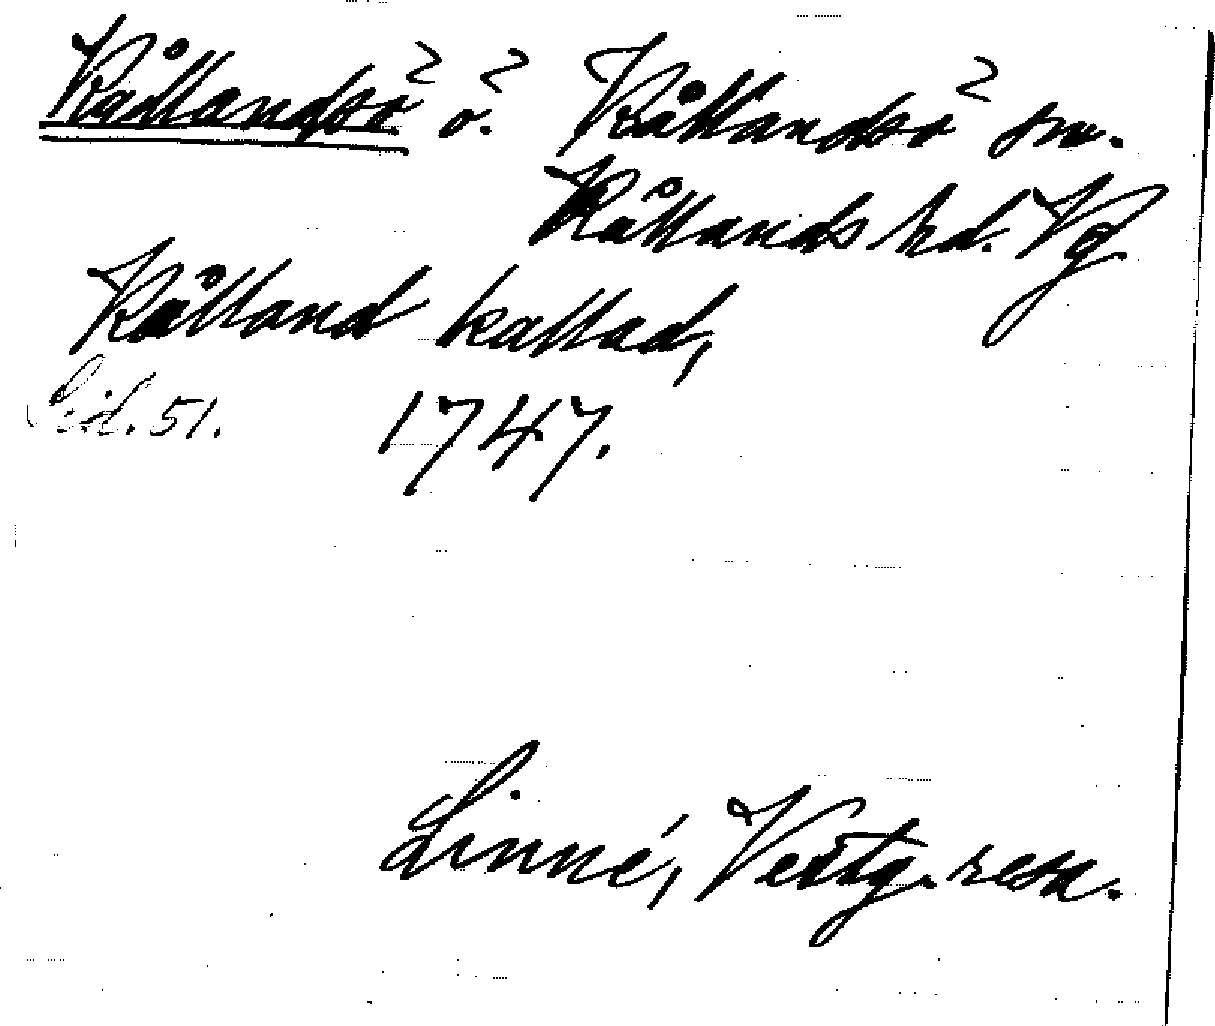 Kållandsö ö. Kållandsö sn.
Kållands hd. Vg.
Kålland kallad,
Sid. 51. 1747.
Linné, Vestg. resa.